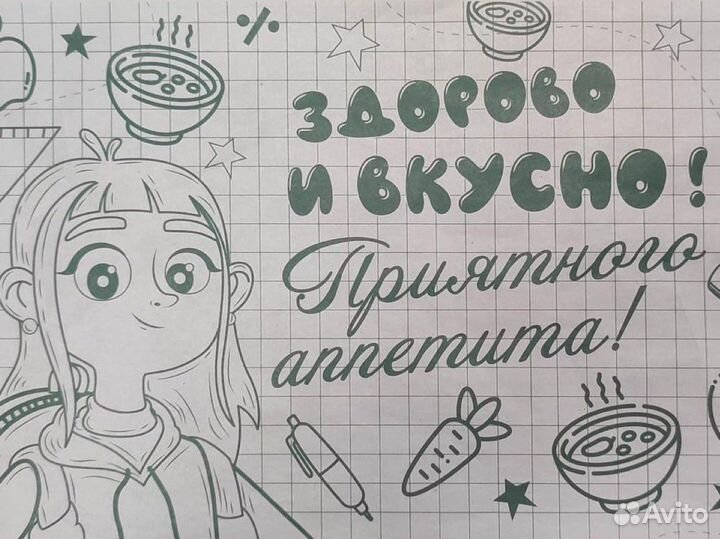 %
ЗДОРОВО
И ВКУСНО!
Приятного
аппетита!
Avito